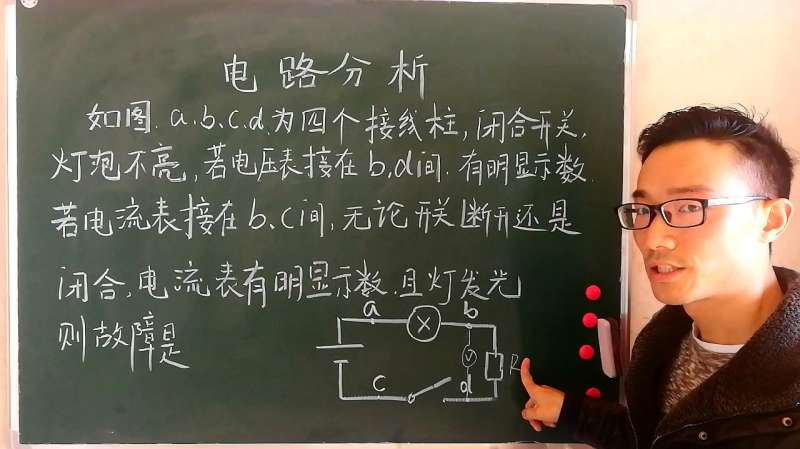 电路分析
如图.a.b.c.d.为四个接线柱,闭合开关,
灯泡不亮,若电压表接在b,d间.有明显示数.
若电流表接在b、c间,无论开关断开还是
闭合,电流表有明显示数.且灯发光
则故障是
a
b
X
V
R
c
d